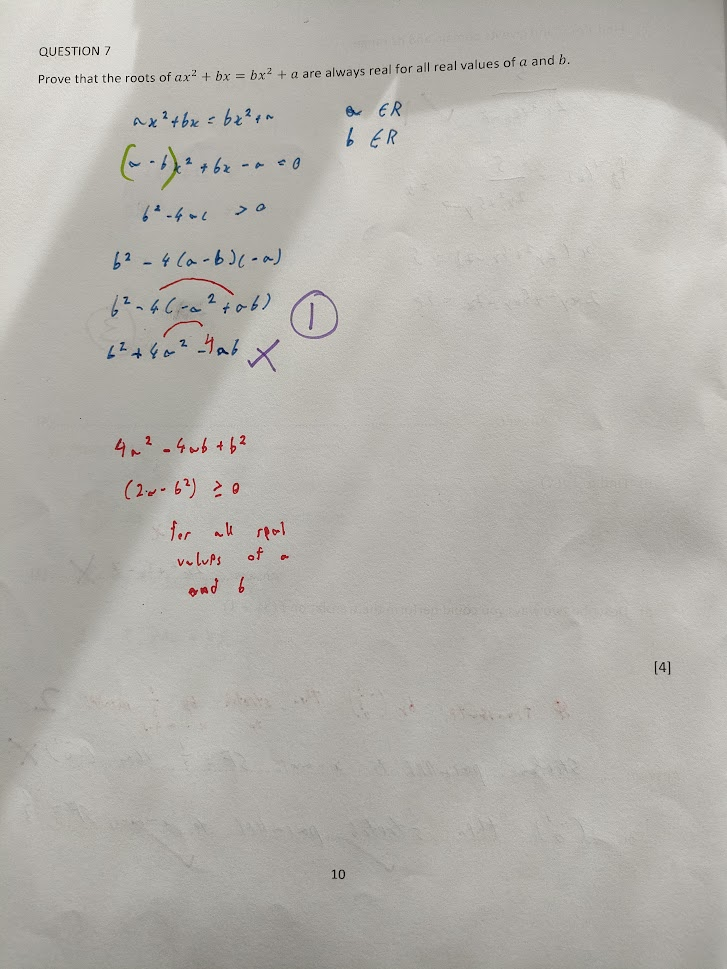 QUESTION 7
Prove that the roots of ax² + bx = bx² + a are always real for all real values of a and b.
ax²+bx = bx²+a
a ∈R
b ∈R
(a-b)x² + bx - a = 0
b² - 4ac > 0
b² - 4(a-b)(-a)
b² - 4(-a² + ab)
1
b² + 4a² - 4ab
4a² - 4ab + b²
(2a - b²) ≥ 0
for all real
values of a
and b
[4]
10